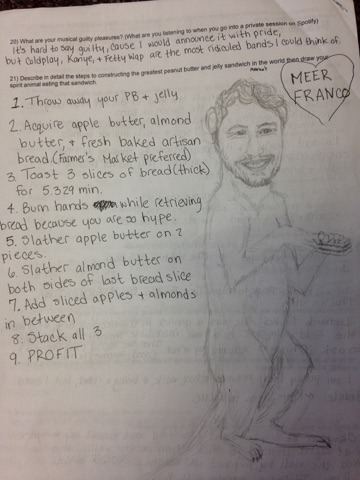 20) What are your musical guilty pleasures? (What are you listening to when you go into a private session on Spotify)
It's hard to say guilty, cause I would announce it with pride,
but Coldplay, Kanye, + Fetty Wap are the most ridiculed bands I could think of.
21) Describe in detail the steps to constructing the greatest peanut butter and jelly sandwich in the world then draw your
spirit animal eating that sandwich.
MEER
FRANCO
1. Throw away your PB + jelly
2. Acquire apple butter, almond
butter, + fresh baked artisan
bread (Farmer's Market preferred)
3. Toast 3 slices of bread (thick)
for 5.329 min.
4. Burn hands while retrieving
bread because you are so hype.
5. Slather apple butter on 2
pieces.
6. Slather almond butter on
both sides of last bread slice
7. Add sliced apples + almonds
in between
8. Stack all 3
9. PROFIT